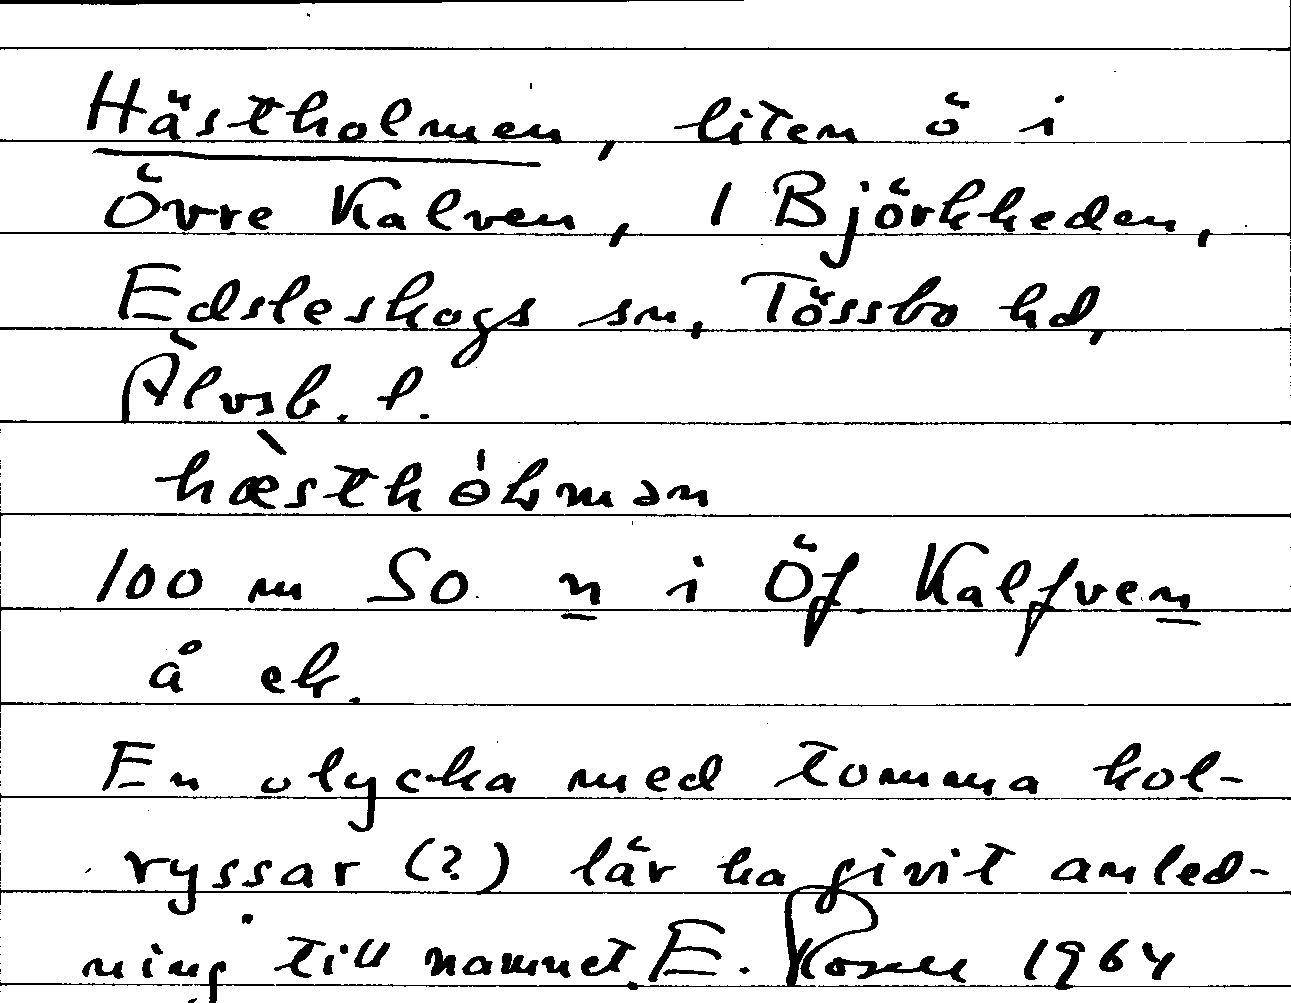 Hästholmen, liten ö i
Övre Kalven, 1 Björkheden,
Edsleskogs sn, Tössbo hd,
Älvsb. l.
100 m SO n i Öf. Kalfven
å ek.
En olycka med tomma kol-
ryssar (?) lär ha givit anled-
ning till namnet. E. Rosell 1964